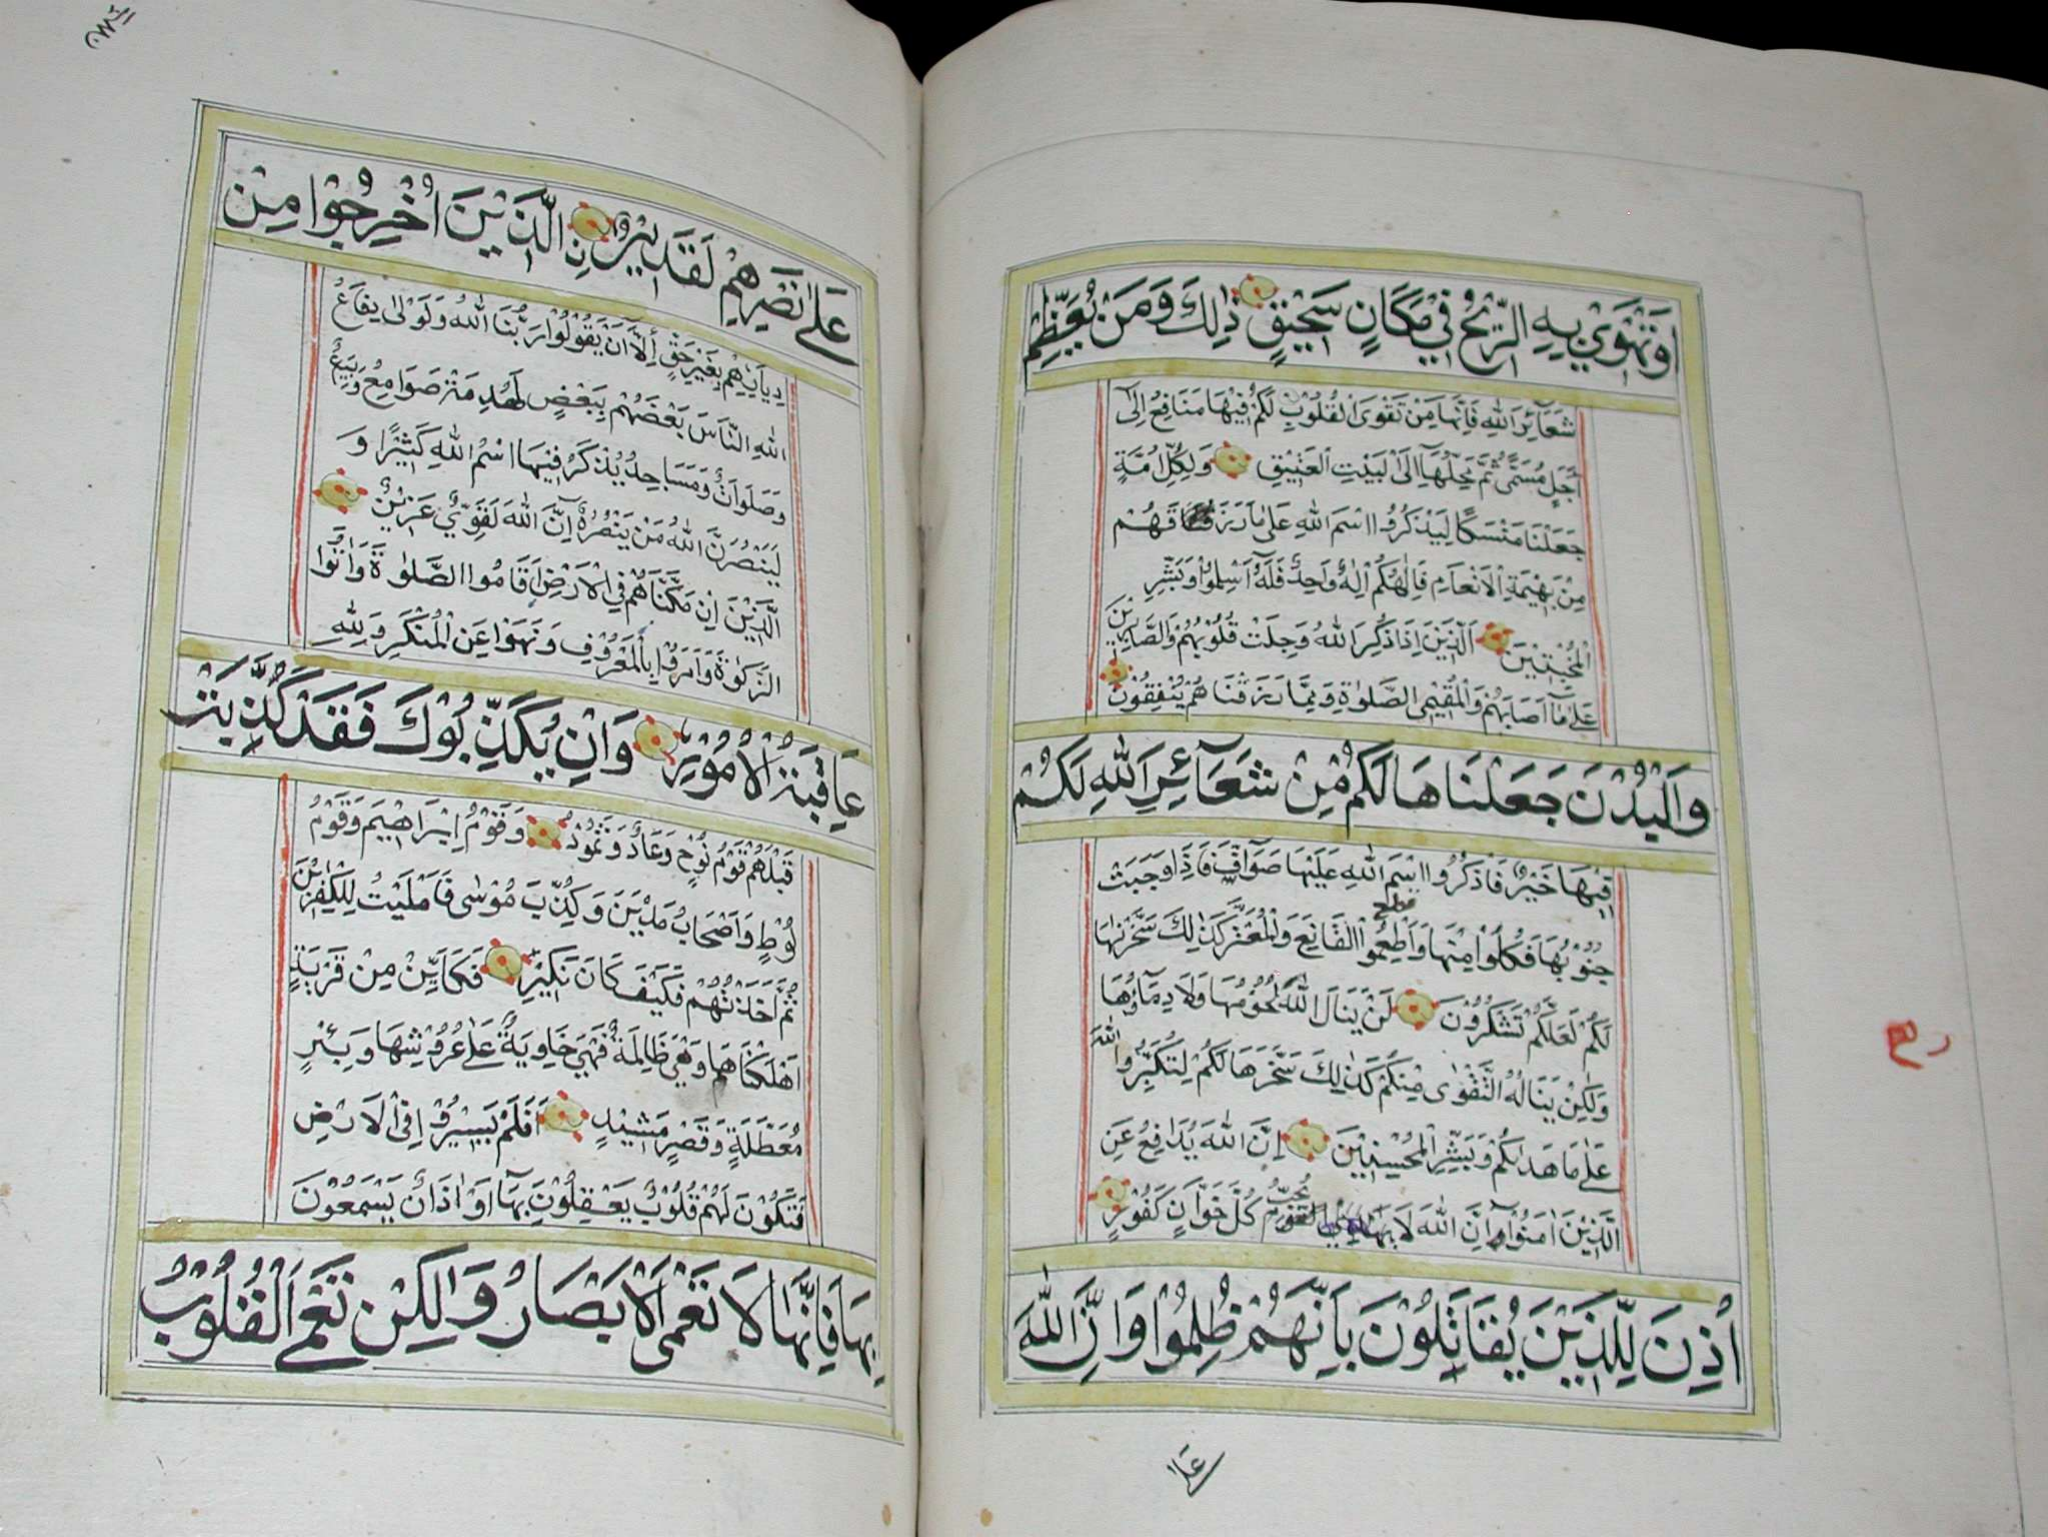 اَوْ تَهْوِيْ بِهِ الرِّيْحُ فِيْ مَكَانٍ سَحِيْقٍ ذٰلِكَ وَمَنْ يُعَظِّمْ
شَعَآئِرَ اللّٰهِ فَاِنَّهَا مِنْ تَقْوَى الْقُلُوْبِ لَكُمْ فِيْهَا مَنَافِعُ اِلٰٓى
اَجَلٍ مُسَمًّى ثُمَّ مَحِلُّهَآ اِلَى الْبَيْتِ الْعَتِيْقِ وَلِكُلِّ اُمَّةٍ
جَعَلْنَا مَنْسَكًا لِيَذْكُرُوا اسْمَ اللّٰهِ عَلٰى مَا رَزَقَهُمْ
مِنْ بَهِيْمَةِ الْاَنْعَامِ فَاِلٰهُكُمْ اِلٰهٌ وَاحِدٌ فَلَهٗ اَسْلِمُوْا وَبَشِّرِ
الْمُخْبِتِيْنَ الَّذِيْنَ اِذَا ذُكِرَ اللّٰهُ وَجِلَتْ قُلُوْبُهُمْ وَالصَّابِرِيْنَ
عَلٰى مَآ اَصَابَهُمْ وَالْمُقِيْمِى الصَّلٰوةِ وَمِمَّا رَزَقْنَاهُمْ يُنْفِقُوْنَ
وَالْبُدْنَ جَعَلْنَاهَا لَكُمْ مِنْ شَعَآئِرِ اللّٰهِ لَكُمْ
فِيْهَا خَيْرٌ فَاذْكُرُوا اسْمَ اللّٰهِ عَلَيْهَا صَوَآفَّ فَاِذَا وَجَبَتْ
جُنُوْبُهَا فَكُلُوْا مِنْهَا وَاَطْعِمُوا الْقَانِعَ وَالْمُعْتَرَّ كَذٰلِكَ سَخَّرْنٰهَا
لَكُمْ لَعَلَّكُمْ تَشْكُرُوْنَ لَنْ يَنَالَ اللّٰهَ لُحُوْمُهَا وَلَا دِمَآؤُهَا
وَلٰكِنْ يَنَالُهُ التَّقْوٰى مِنْكُمْ كَذٰلِكَ سَخَّرَهَا لَكُمْ لِتُكَبِّرُوا اللّٰهَ
عَلٰى مَا هَدٰىكُمْ وَبَشِّرِ الْمُحْسِنِيْنَ اِنَّ اللّٰهَ يُدَافِعُ عَنِ
الَّذِيْنَ اٰمَنُوْا اِنَّ اللّٰهَ لَا يُحِبُّ كُلَّ خَوَّانٍ كَفُوْرٍ
اُذِنَ لِلَّذِيْنَ يُقَاتَلُوْنَ بِاَنَّهُمْ ظُلِمُوْا وَاِنَّ اللّٰهَ
عَلٰى
عَلٰى نَصْرِهِمْ لَقَدِيْرٌ نِ الَّذِيْنَ اُخْرِجُوْا مِنْ
دِيَارِهِمْ بِغَيْرِ حَقٍّ اِلَّآ اَنْ يَقُوْلُوْا رَبُّنَا اللّٰهُ وَلَوْلَا دِفَاعُ
اللّٰهِ النَّاسَ بَعْضَهُمْ بِبَعْضٍ لَهُدِمَتْ صَوَامِعُ وَبِيَعٌ
وَصَلَوَاتٌ وَمَسَاجِدُ يُذْكَرُ فِيْهَا اسْمُ اللّٰهِ كَثِيْرًا وَ
لَيَنْصُرَنَّ اللّٰهُ مَنْ يَنْصُرُهٗ اِنَّ اللّٰهَ لَقَوِيٌّ عَزِيْزٌ
الَّذِيْنَ اِنْ مَكَّنَّاهُمْ فِي الْاَرْضِ اَقَامُوا الصَّلٰوةَ وَاٰتَوُا
الزَّكٰوةَ وَاَمَرُوْا بِالْمَعْرُوْفِ وَنَهَوْا عَنِ الْمُنْكَرِ وَلِلّٰهِ
عَاقِبَةُ الْاُمُوْرِ وَاِنْ يُكَذِّبُوْكَ فَقَدْ كَذَّبَتْ
قَبْلَهُمْ قَوْمُ نُوْحٍ وَعَادٌ وَثَمُوْدُ وَقَوْمُ اِبْرَاهِيْمَ وَقَوْمُ
لُوْطٍ وَاَصْحَابُ مَدْيَنَ وَكُذِّبَ مُوْسٰى فَاَمْلَيْتُ لِلْكٰفِرِيْنَ
ثُمَّ اَخَذْتُهُمْ فَكَيْفَ كَانَ نَكِيْرِ فَكَاَيِّنْ مِنْ قَرْيَةٍ
اَهْلَكْنَاهَا وَهِيَ ظَالِمَةٌ فَهِيَ خَاوِيَةٌ عَلٰى عُرُوْشِهَا وَبِئْرٍ
مُعَطَّلَةٍ وَقَصْرٍ مَشِيْدٍ اَفَلَمْ يَسِيْرُوْا فِي الْاَرْضِ
فَتَكُوْنَ لَهُمْ قُلُوْبٌ يَعْقِلُوْنَ بِهَآ اَوْ اٰذَانٌ يَسْمَعُوْنَ
بِهَا فَاِنَّهَا لَا تَعْمَى الْاَبْصَارُ وَلٰكِنْ تَعْمَى الْقُلُوْبُ